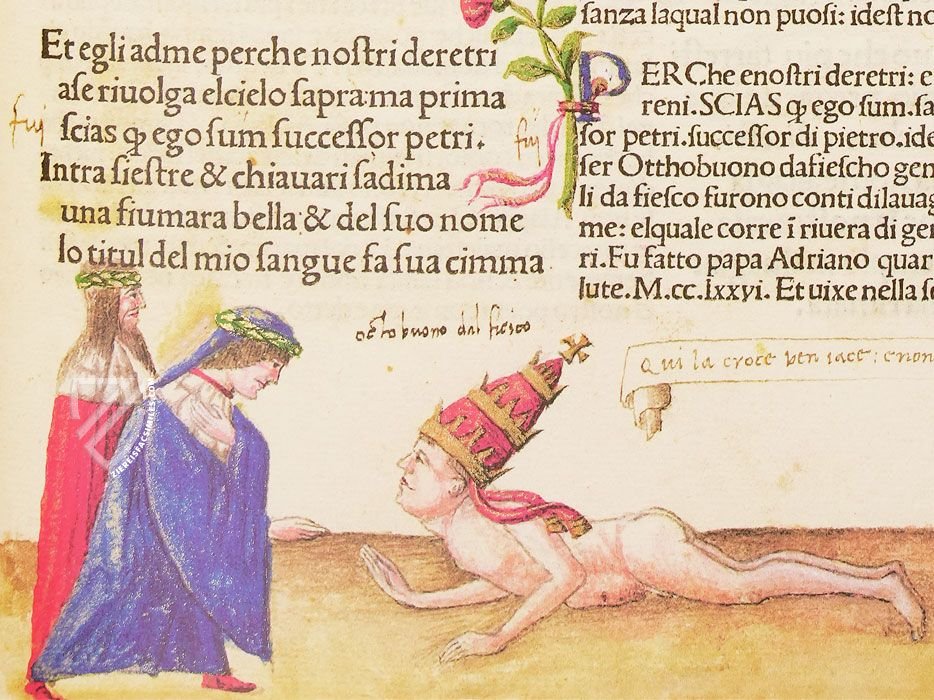 Et egli adme perche noſtri deretri
aſe riuolga elcielo ſapra:ma prima
ſcias ꝙ ego ſum ſucceſſor petri.
Intra ſieſtre & chiauari ſadima
una fiumara bella:& del ſuo nome
lo titul del mio sangue fa ſua cimma
octobuono dal fiesco
ſanza laqual non puoſi: ideſt no
PER Che enoſtri deretri: e
reni.SCIAS ꝙ ego ſum.ſa
ſor petri.ſucceſſor di pietro.ide
ſer Otthobuono dafieſcho gen
li da fieſco furono conti dilauag
me: elquale corre ī riuera di gen
ri.Fu fatto papa Adriano quar
lute.M.cc.lxxvi. Et uixe nella ſe
Qui la croce ben iace: enon
ZIEREISFACSIMILES.COM